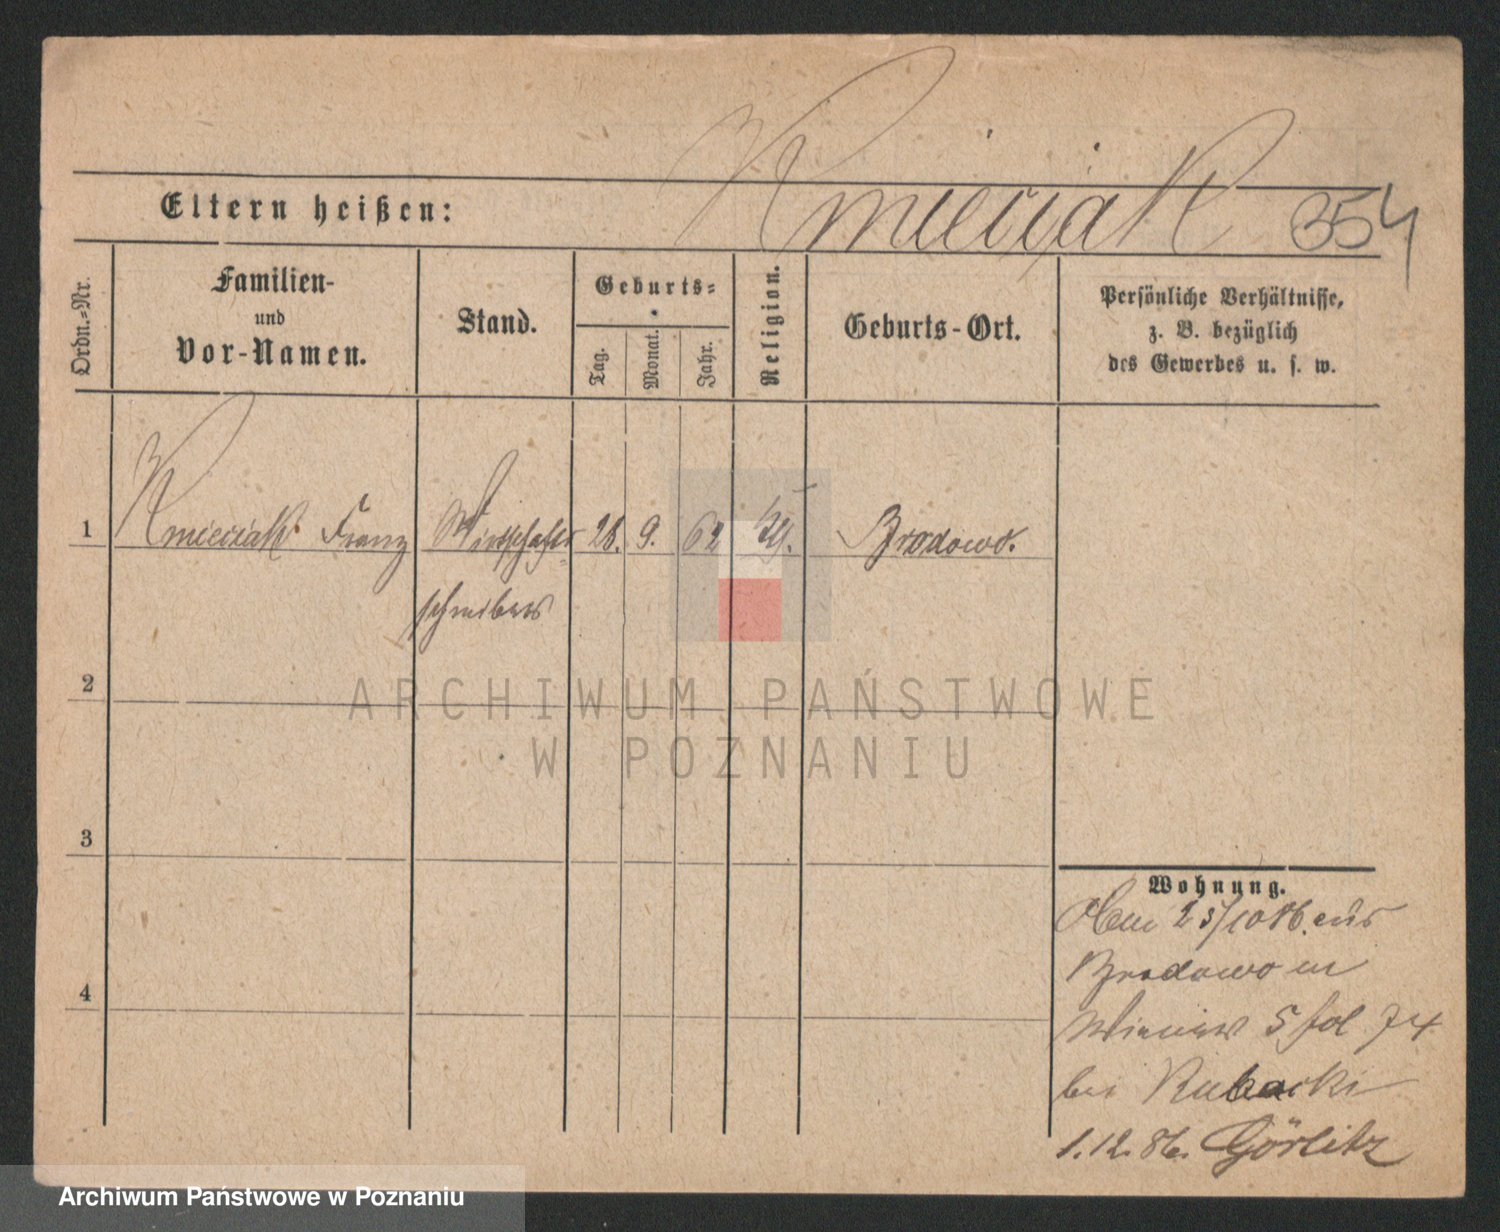 Kmieciak 354
Eltern heißen:
Ordn.-Nr.
Familien-
und
Vor-Namen.
Stand.
Geburts-
Tag.
Monat.
Jahr.
Religion.
Geburts-Ort.
Persönliche Verhältnisse,
z. B. bezüglich
des Gewerbes u. s. w.
1 Kmieciak Franz Wirtschafts- 28. 9. 62 Brodowo.
schreiber
2
ARCHIWUM PAŃSTWOWE
W POZNANIU
3
4
Wohnung.
25/10 86. aus
Brodowo in
5 fol 74
bei
1.12.86. Görlitz
Archiwum Państwowe w Poznaniu